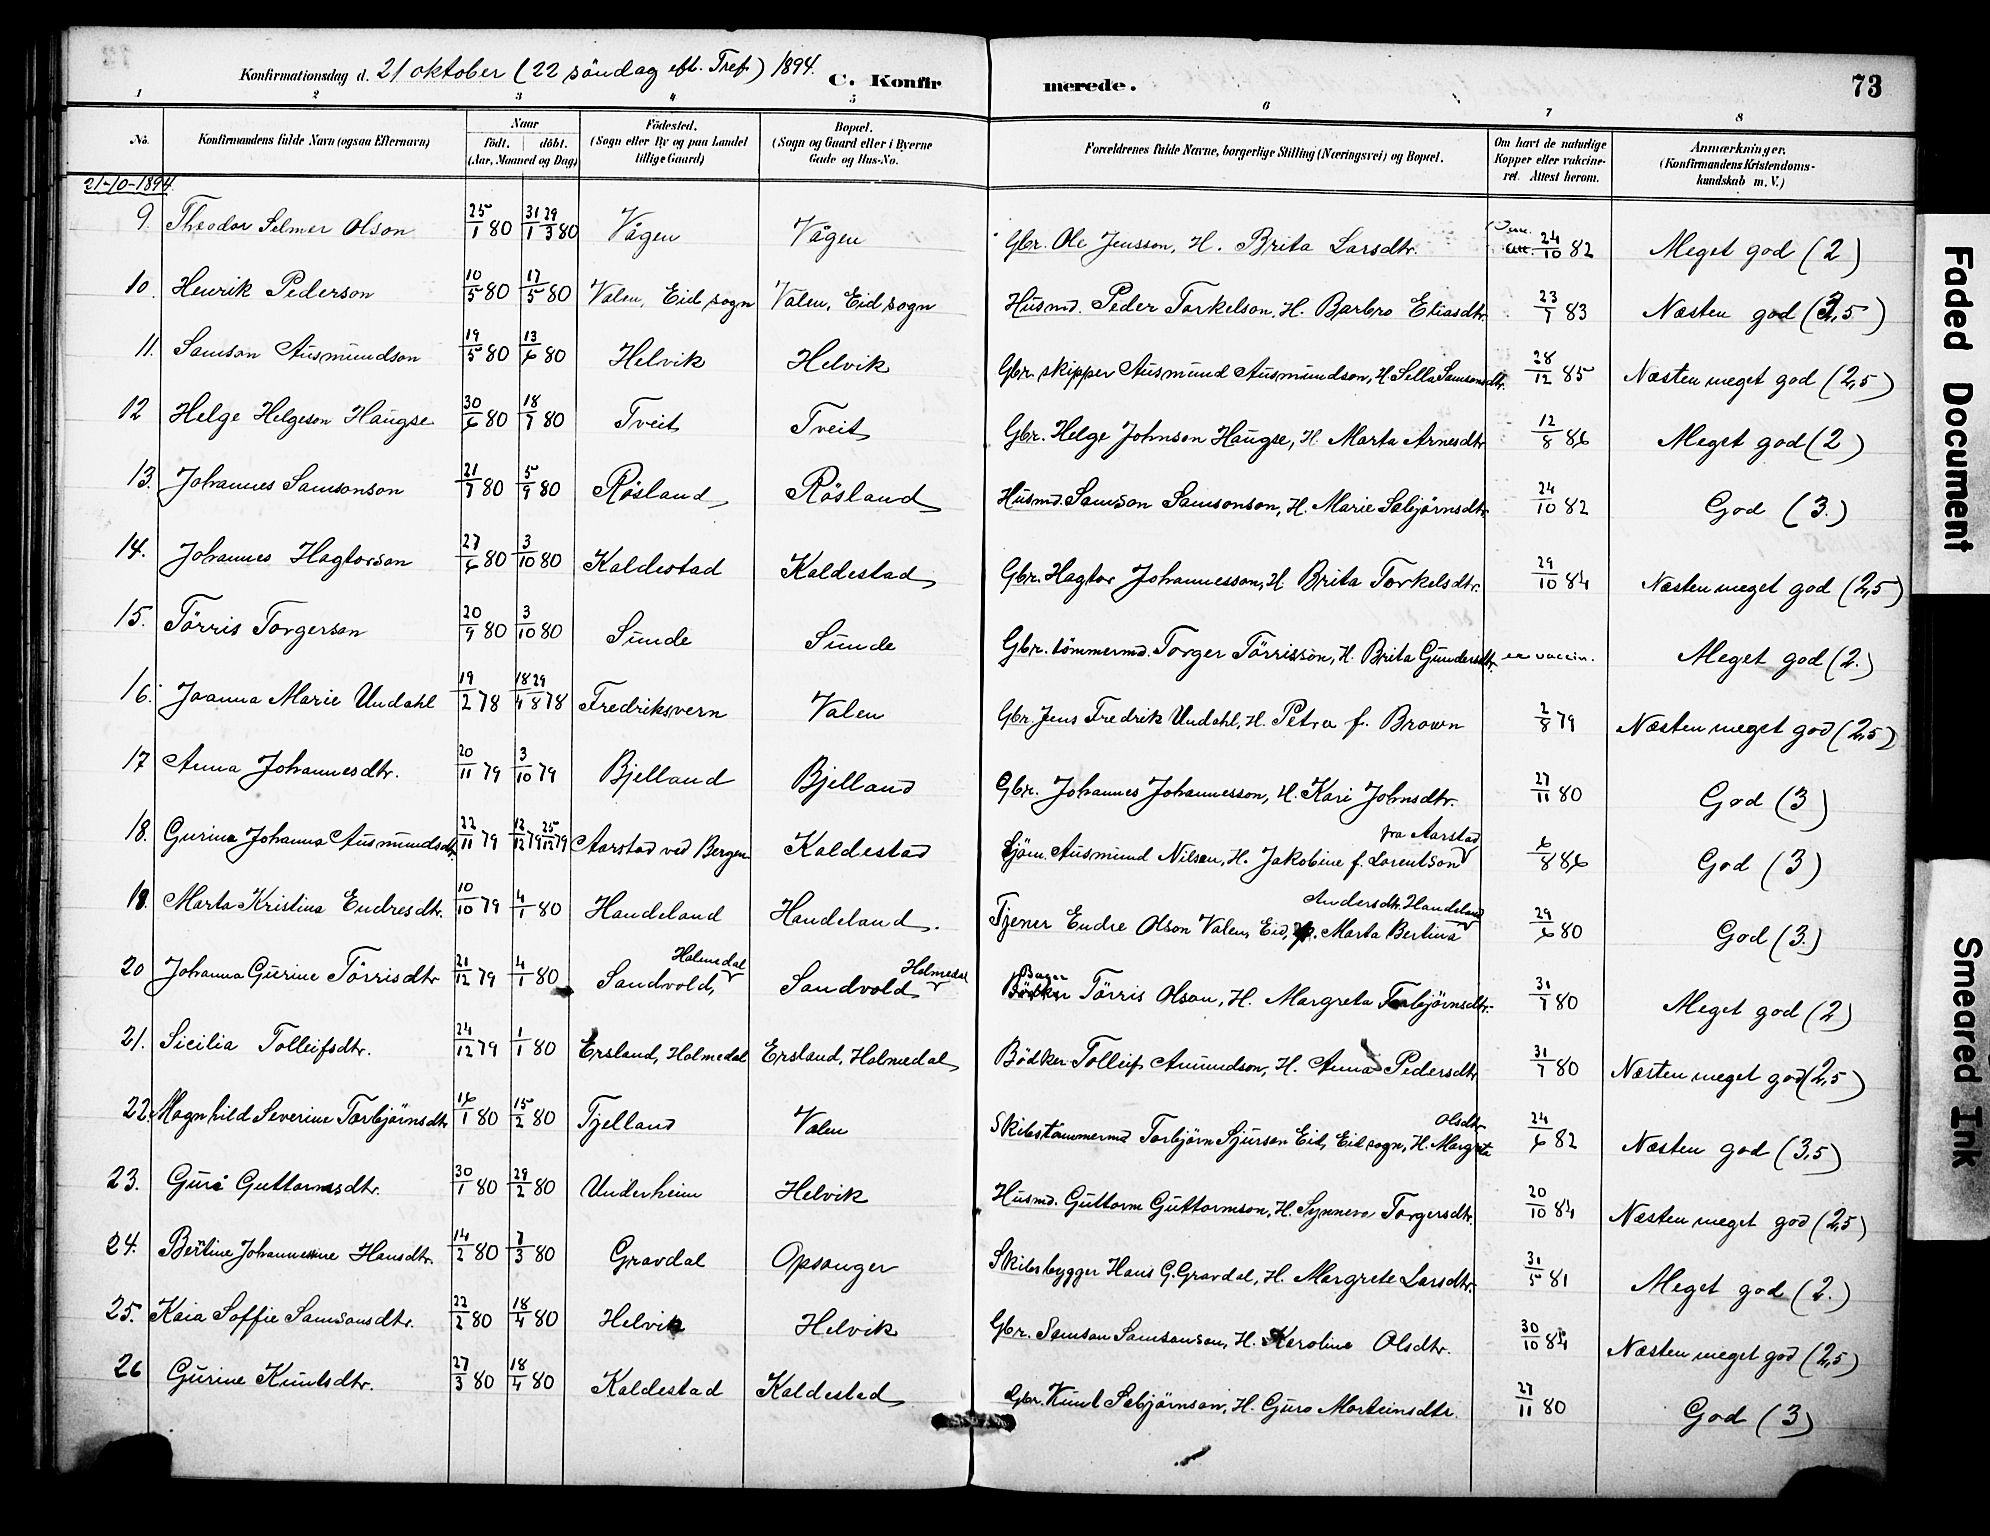 Konfirmationsdag d. 21 oktober (22 söndag eft. Tref.) 1894. C. Konfirmerede. 73
1 2 3 4 5 6 7 8
No. Konfirmandens fulde Navn (ogsaa Efternavn) Naar födt. döbt. (Aar, Maaned og Dag) Födested. (Sogn eller By og paa Landet tillige Gaard) Bopæl. (Sogn og Gaard eller i Byerne Gade og Hus-No. Forældrenes fulde Navne, borgerlige Stilling (Næringsvei) og Bopæl. Om havt de naturlige Kopper eller vakcineret. Attest herom. Anmærkninger. (Konfirmandens Kristendomskundskab m. V.)
21-10-1894.
9. Theodor Selmer Olson 25/1 80 31/1 29/3 80 Vågen Vågen Gbr. Ole Jensson, H. Brita Larsdtr. 24/10 82 Meget god (2)
10. Henrik Pederson 10/5 80 17/5 80 Valen, Eid sogn Valen, Eid sogn Husmd. Peder Torkelson, H. Barbro Eliasdtr. 23/7 83 Næsten god (3,5)
11. Samson Ausmundson 19/5 80 13/6 80 Helvik Helvik Gbr. skipper Ausmund Ausmundson, H. Sella Samsonsdtr. 28/12 85 Næsten meget god (2,5)
12 Helge Helgeson Haugse 30/6 80 18/7 80 Tveit Tveit Gbr. Helge Johnson Haugse, H. Marta Arnesdtr 12/8 86 Meget god (2)
13. Johannes Samsonson 21/7 80 5/9 80 Røsland Røsland Husmd. Samson Samsonson, H. Marie Sæbjörnsdtr 24/10 82 God (3.)
14. Johannes Hagtorson 27/6 80 3/10 80 Kaldestad Kaldestad Gbr. Hagtor Johannesson, H. Brita Torkelsdtr. 29/10 84 Næsten meget god (2,5)
15. Törris Torgerson 20/9 80 3/10 80 Sunde Sunde Gbr. tömmermd. Torger Törrisson, H. Brita Gundersdtr. er vaccin. Meget god (2.)
16. Joanna Marie Undahl 19/2 78 18/4 29/8 78 Fredriksvern Valen Gbr. Jens Fredrik Undahl, H. Petra f. Brown 2/8 79 Næsten meget god (2,5)
17 Anna Johannesdtr. 20/11 79 3/10 79 Bjelland Bjelland Gbr. Johannes Johannesson, H. Kari Johnsdtr. 27/11 80 God (3)
18. Gurina Johanna Ausmundsdtr 22/11 79 12/12 79 25/12 79 Aarstad ved Bergen Kaldestad Sjöm. Ausmund Nilsen, H. Jakobine f. Lorentson fra Aarstad 6/8 86 God (3)
18. Marta Kristina Endresdtr. 10/10 79 4/1 80 Handeland Handeland. Tjener Endre Olson Valen, Eid, Marta Bertina Andersdtr. Handeland 29/6 80 God (3.)
20 Johanna Gurine Törrisdtr 21/12 79 4/1 80 Sandvold, Holmedal Sandvold Holmedal Bager Törris Olson, H. Margreta Torbjörnsdtr. 31/7 80 Meget god (2)
21. Sicilia Tolleifsdtr. 24/12 79 1/1 80 Ersland, Holmedal Ersland, Holmedal Bödker Tolleif Amundson, H. Anna Pedersdtr 31/7 80 Næsten meget god (2,5)
22. Magnhild Severine Torbjörnsdtr 16/1 80 15/2 80 Tjelland Valen Skibstömmermd Torbjörn Sjurson Eid, Eid sogn, H. Margreta Olsdtr 24/6 82 Næsten god (3,5)
23. Guri Guttormsdtr. 30/1 80 29/2 80 Underheim Helvik Husmd. Guttorm Guttormson, H. Synneva Torgersdtr. 20/10 84 Næsten meget god (2,5)
24. Bertine Johannesine Hansdtr. 14/2 80 7/3 80 Gravdal Opsanger Skibsbygger Hans G. Gravdal, H. Margrete Larsdtr. 31/5 81 Meget god (2.)
25. Kaia Soffie Samsonsdtr. 22/2 80 18/4 80 Helvik Helvik Gbr. Samson Samsonson, H. Karolina Olsdtr. 30/10 84 Næsten meget god (2,5)
26 Gurine Knutsdtr. 27/3 80 18/4 80 Kaldestad Kaldestad Gbr. Knut Sæbjörnson, H. Guro Morteinsdtr. 27/11 80 God (3)
Faded Document
Smeared Ink